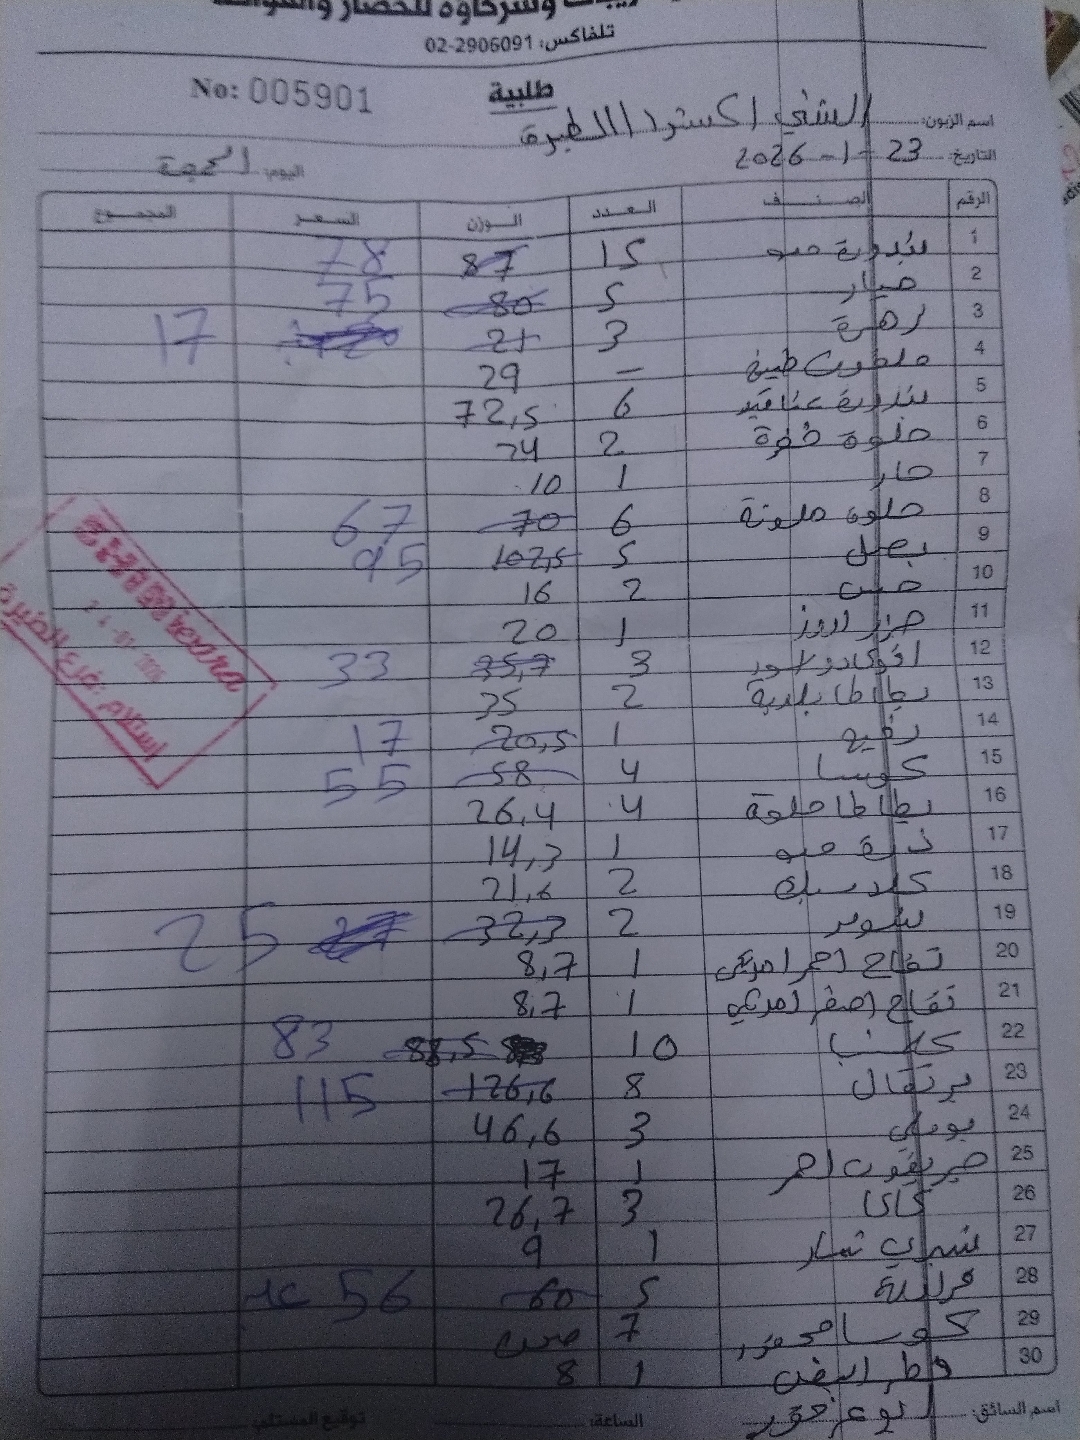 تلفاكس: 02-2906091
No: 005901
طلبية
اسم الزبون: الشني اكسترا الطيرة
التاريخ: 23-1-2026
اليوم: الجمعة
الرقم الصنف العدد الوزن السعر المجموع
1 بندورة حبو 15 87 78
2 خيار 5 80 75
3 زهرة 3 21 17
4 ملفوف طبيخ – 29
5 بندورة عناقيد 6 72,5
6 حلوة خضرة 2 24
7 حار 1 10
8 حلوة ملونة 6 70 67
9 بصل 5 102,5 95
10 خس 2 16
11 1 20
12 افوكادو 3 35,7 33
13 بطاطا بلدية 2 35
14 رفيع 1 20,5 17
15 كوسا 4 58 55
16 بطاطا حلوة 4 26,4
17 ذرة حبو 1 14,3
18 2 21,6
19 2 32,3 25
20 تفاح احمر امريكي 1 8,7
21 تفاح اصفر امريكي 1 8,7
22 10 88,5 83
23 برتقال 8 126,6 115
24 بوملي 3 46,6
25 جريفوت احمر 1 17
26 كاكا 3 26,7
27 شيري 1 9
28 فراولة 5 60 56 عد
29 كوسا محفور 7 صحن
30 فطر ابيض 1 8
اسم السائق: ابو
الساعة:
توقيع المستلم:
استلام: فرع الطيرة